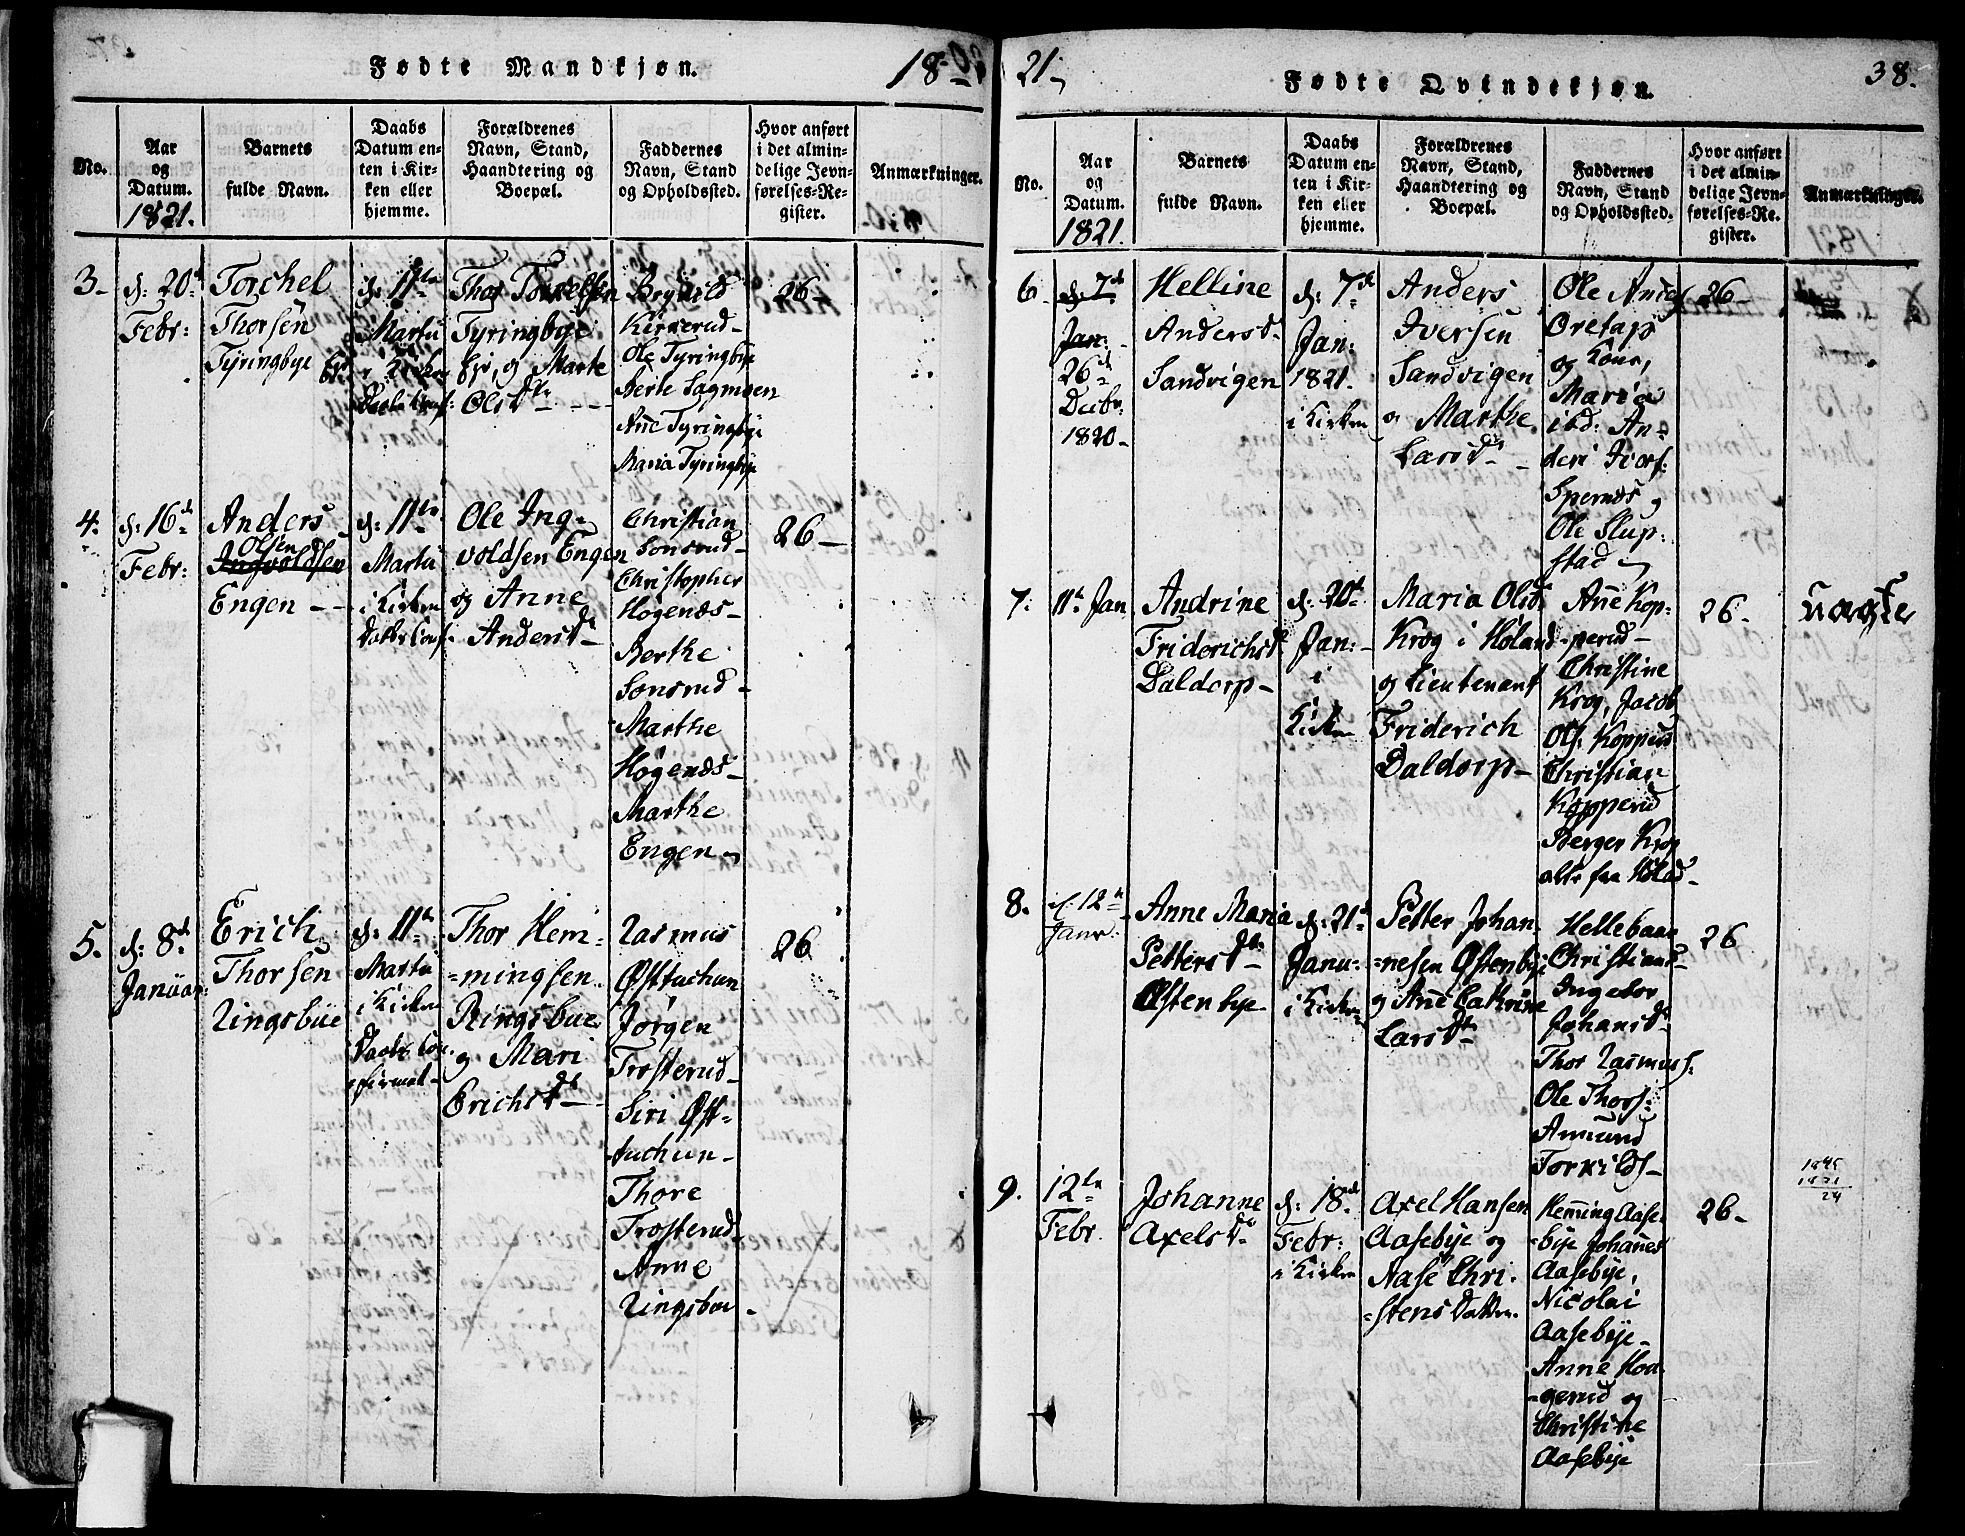 Fødte Mandkjøn.
18
No.
Aar
og
Datum.
1821.
Barnets
fulde Navn.
Daabs
Datum en-
ten i Kir-
ken eller
hjemme.
Forældrenes
Navn, Stand,
Haandtering og
Boepæl.
Faddernes
Navn, Stand
og Opholdssted.
Hvor anført
i det almin-
delige Jevn-
førelses-Re-
gister.
Anmærkninger.
3-
d: 20de
Febr:
Torchel
Thorsen
Tyringbye
d: 11te
Martii
i Kirken
Thor
Tyringbye
Eje, og Marte
Olsdtr
Kirkerud-
Ole Tyringbye
Berte Sagmoen
Anne Tyringbye
Maria Tyringbye
26-
4.
d: 16de
Febr:
Anders
Olsen
Ingvoldsen
Engen --
d: 11te
Martii
i Kirken
Ole Ing-
voldsen Engen
og Anne
Andersdr
Christian
Sonsrud-
Christopher
Høgenæs-
Berthe
Sonsrud-
Marthe
Høgenæs-
Marthe
Engen
26-
5.
d: 8de
Januar:
Erich
Thorsen
Ringsbüe
d: 11te
Martii
i Kirken
Daabs con-
firmat-
Thor Hem-
=mingsen
Ringsbue
og Mari
Erichsdr
Rasmus
Jørgen
Trosterud-
Siri Øst-
Thore
Trosterud-
Anne
Ringsbue
26
21
Fødte Qvindekjøn.
38.
No.
Aar
og
Datum.
1821.
Barnets
fulde Navn.
Daabs
Datum en-
ten i Kir-
ken eller
hjemme.
Forældrenes
Navn, Stand,
Haandtering og
Boepæl.
Faddernes
Navn, Stand
og Opholdssted.
Hvor anført
i det almin-
delige Jevn-
førelses-Re-
gister.
Anmærkninger.
6
d: 7de
Jan:
26de
Decbr:
1820-
Helline
Andersd.
Sandvigen
d: 7de
Jan:
1821.
i Kirken
Anders
Iversen
Sandvigen
og Marthe
Larsdr
Ole Anders
og Kone,
Maria
ibd: An-
ders Ivers:
Spernæs og
Ole Slup-
stad
26-
7.
11te Jan
Andrine
Friderichsd.
Daldorp-
d: 20de
Jan:
i
Kirken
Maria Olsdr
Krog i Høland
og Lieutenant
Friderich
Daldorp-
Anne Kop-
perud-
Christine
Krog, Jacob
Ols: Kopperud
Christian
Kopperud
Berger Krog
alle fra Høland-
26-
uægte
8.
d. 12te
Janr:
Anne Maria
Pettersdtr
Østenbye
d: 21de
Janu:
i Kirken
Petter Johan-
=nesen Østenbye
og Anne Cathrine
Larsdtr
Christians-
Ingebor
Johansdr
Thor Rasmuss:
Ole Thors:
Amund
Torkilds-
26
9.
12te
Febr.
Johanne
Axelsdr
d: 18de
Febr:
i Kirken
Axel Hansen
Aasebye og
Aase Chri-
=stensdatter.
Hemming Aase-
=bye Johannes
Aasebye,
Nicolai
Aasebye-
Anne Hou-
=gerud og
Christine
Aasebye
26-
1845
1821
24